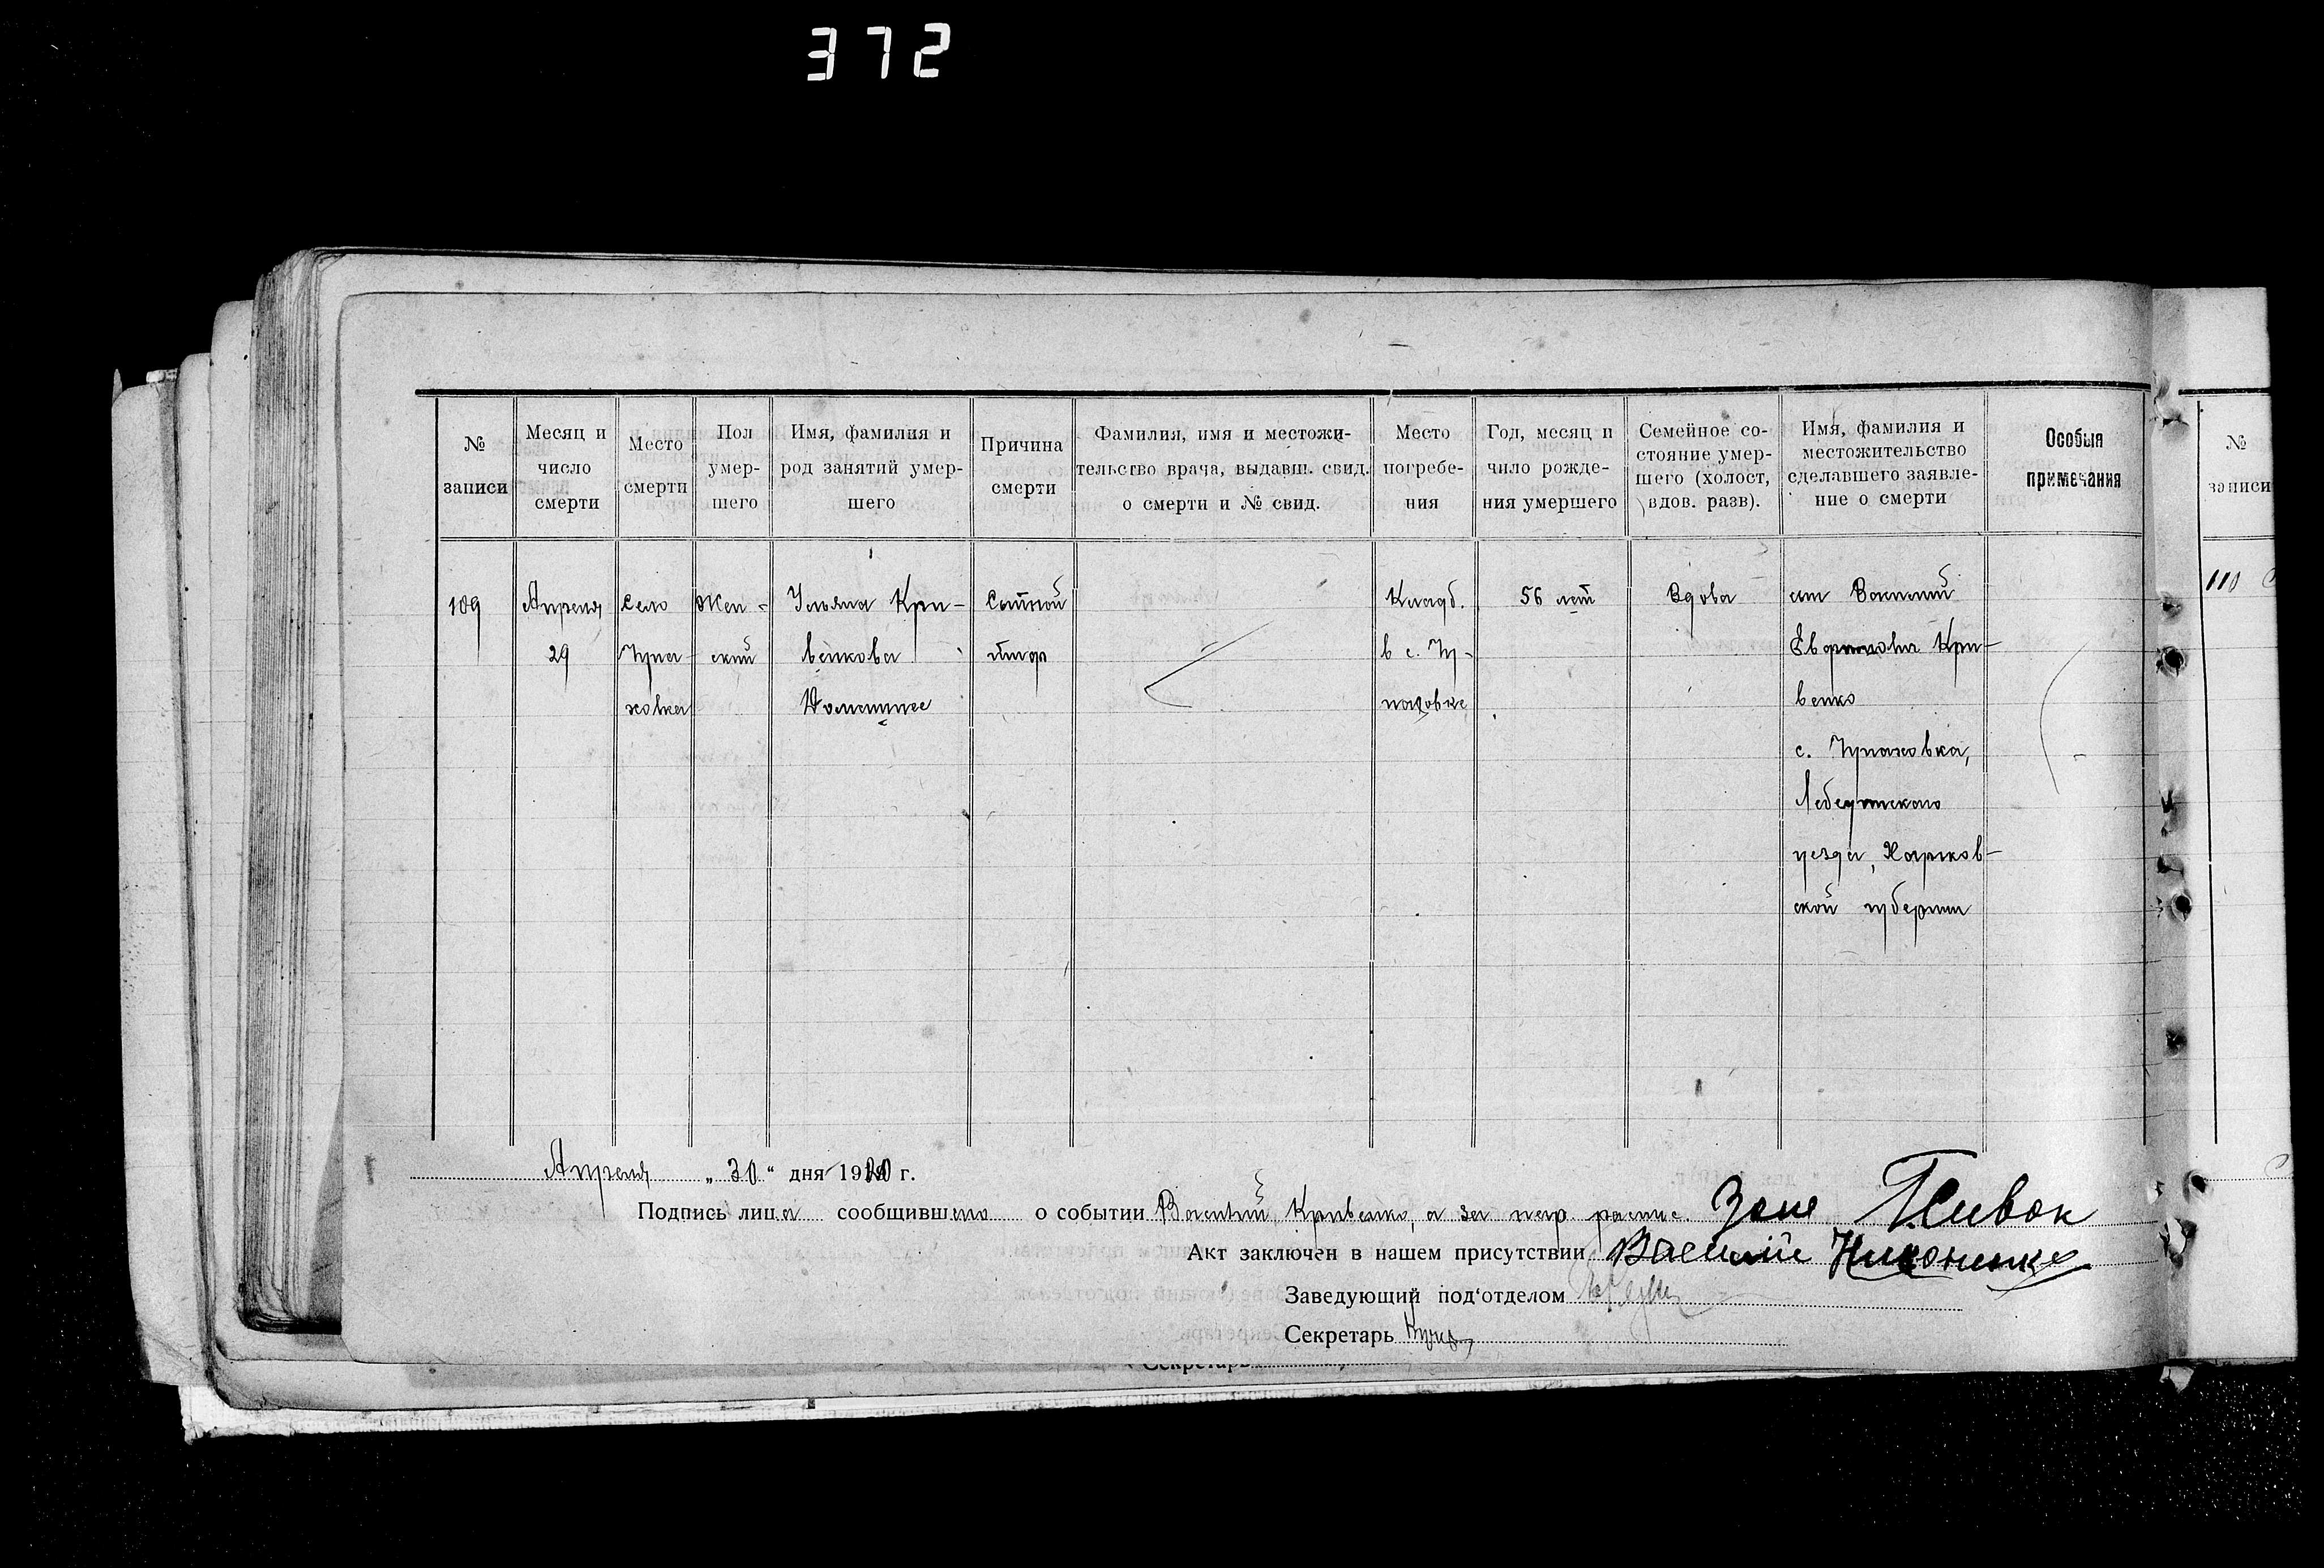 372
№ записи
Месяц и число смерти
Место смерти
Пол умер- шего
Имя, фамилия и род занятий умер- шего
Причина смерти
Фамилия, имя и местожи- тельство врача, выдавш. свид. о смерти и № свид.
Место погребе- ния
Год, месяц и чило рожде- ния умершего
Семейное со- стояние умер- шего (холост, вдов. разв).
Имя, фамилия и местожительство сделавшего заявле- ние о смерти
Особыя примечания
№ записи
109
Апреля
29
село
Гупа-
ховка
Жен-
ский
Ульяна Кри-
венкова
Домашнее
Сыпной
тиф
Кладб.
в с. Гу-
паховке
56 лет
Вдова
сын Василий
Кри-
венко
с. Гупаховка,
Лебединского
уезда, Харьков-
ской губернии
110
Апреля „30“ дня 1920 г.
Подпись лица сообщившего о событии Василий Кривенко, а за негр распис.
Акт заключен в нашем присутствии Василий Никоненко
Заведующий под‘отделом
Секретарь
Секретарь